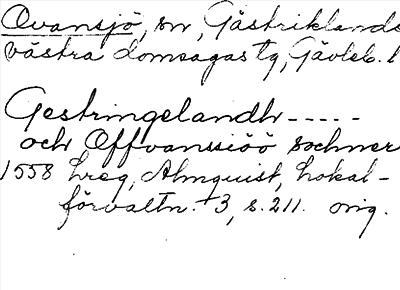 Ovansjö, sn, Gästriklands
västra domsagas tg, Gävleb. l
Gestringelandh -----
och Offvanssiöö sochner
1558 Lreg, Almquist, Lokal-
förvaltn. 3, s. 211. orig.